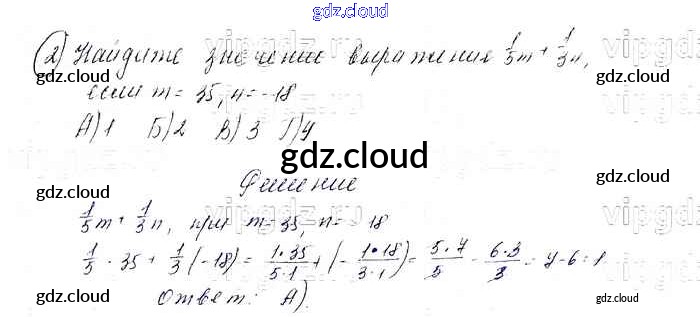 gdz.cloud
2) Найдите значение выражения 1/5 m + 1/3 n,
если m = 35, n = -18
А) 1 Б) 2 В) 3 Г) 4
gdz.cloud
gdz.cloud
gdz.cloud
Решение
1/5 m + 1/3 n, при m = 35, n = -18
1/5 · 35 + 1/3 (-18) = 1·35/5·1 + (- 1·18/3·1) = 5·7/5 - 6·3/3 = 7-6 = 1
gdz.cloud
gdz.cloud
gdz.cloud
Ответ: А).